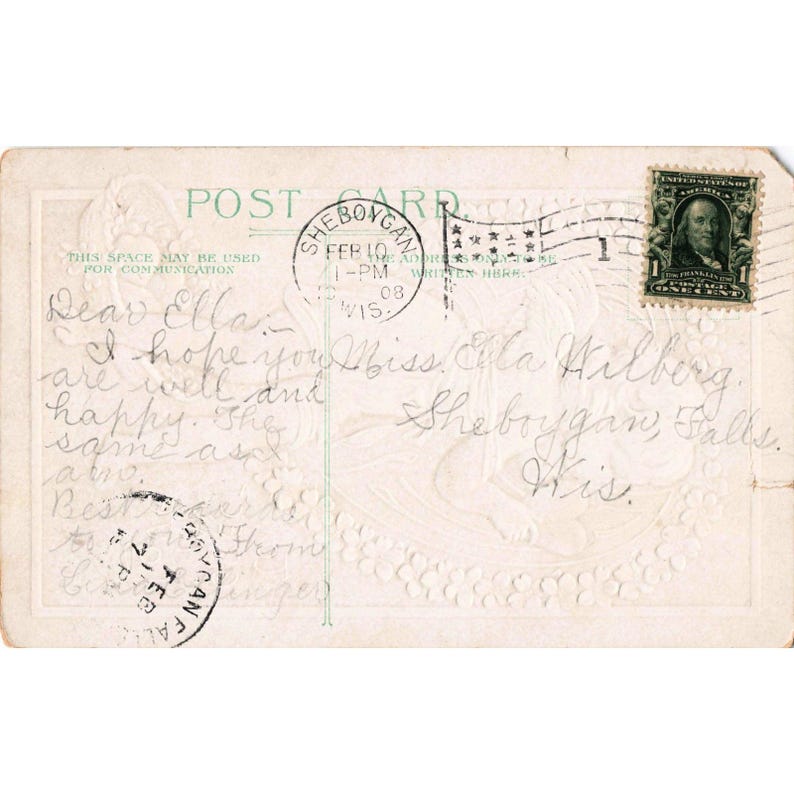 POST CARD.
SHEBOYGAN
FEB 10
1-PM
08
WIS.
1
UNITED STATES OF
AMERICA
1
FRANKLIN
1
POSTAGE
ONE CENT
THIS SPACE MAY BE USED
FOR COMMUNICATION
THE ADDRESS ONLY TO BE
WRITTEN HERE.
Dear Ella:-
I hope you
are well and
happy. The
same as I
am.
Best
to you From
Miss. Ella Wilberg.
Sheboygan, Falls.
Wis.
FEB